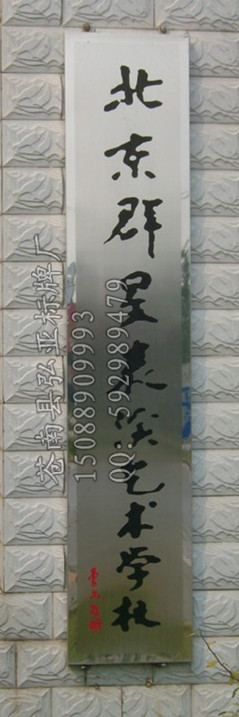 北京群星表演艺术学校
苍南县弘亚标牌厂
15088909993
QQ:592989479